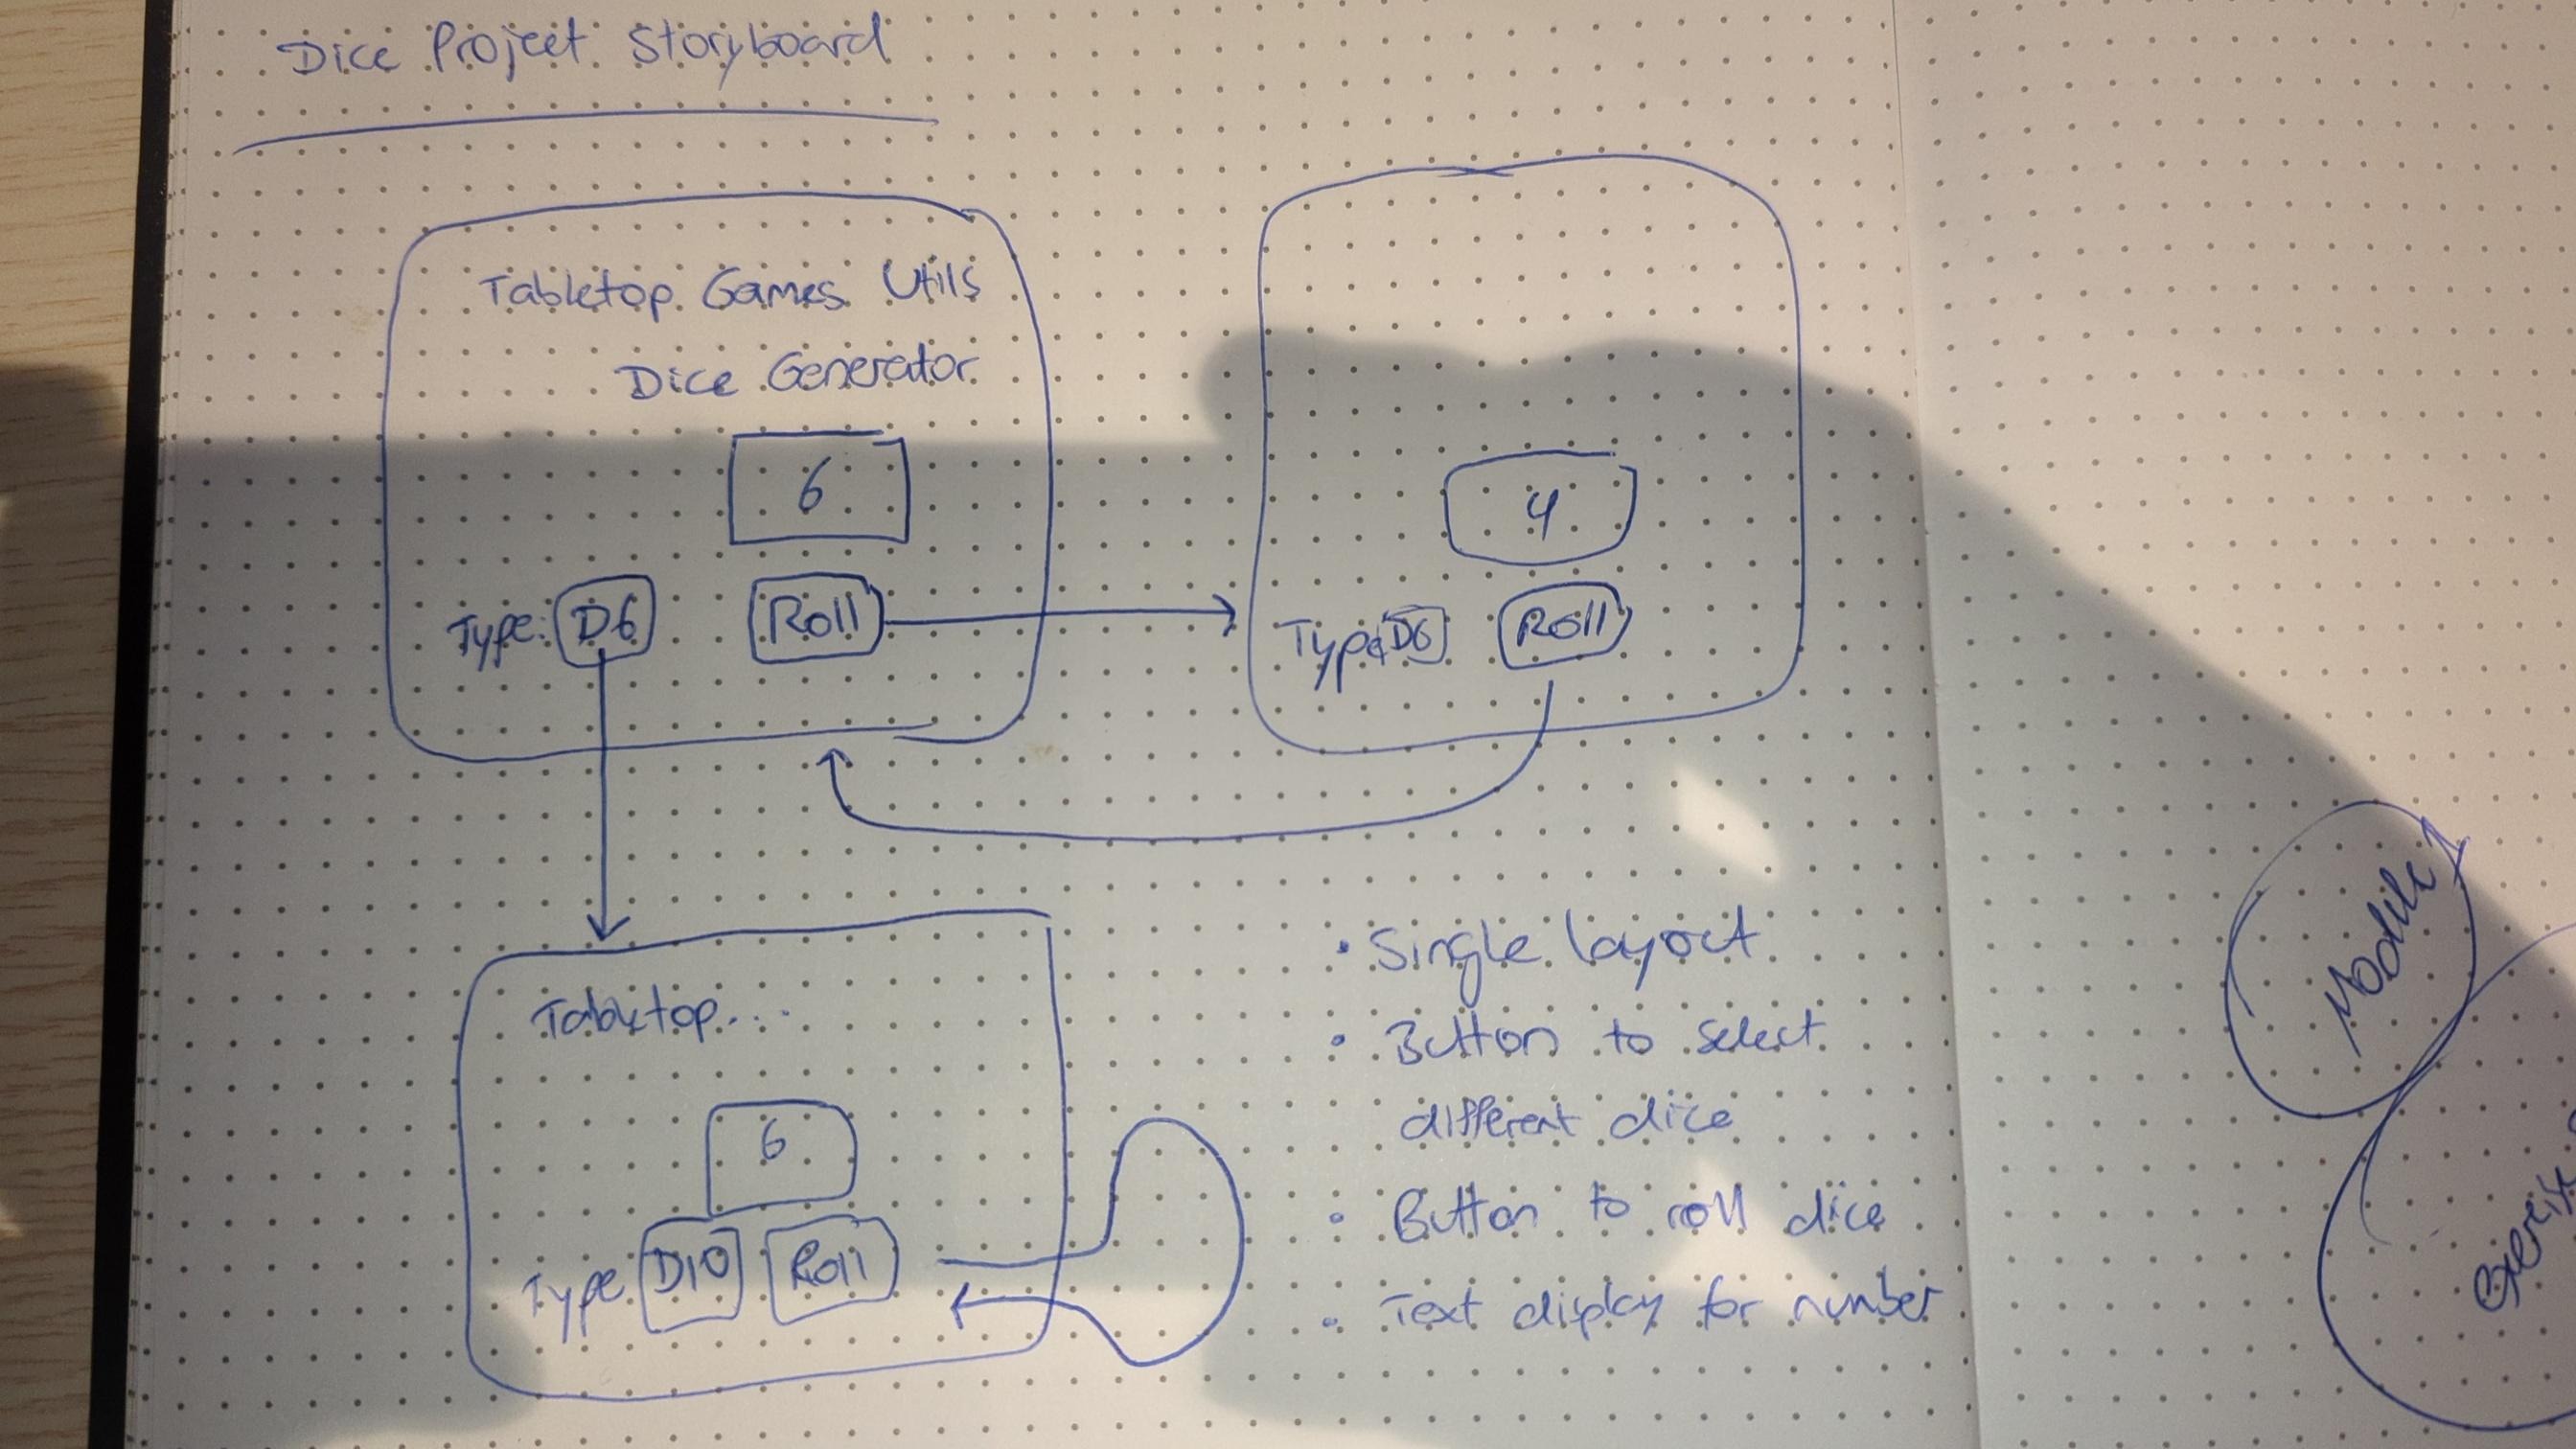 Dice Project Storyboard
Tabletop Games Utils
Dice Generator
6
Type: D6 Roll
4
Type D6 Roll
Tabletop...
6
Type D10 Roll
• Single layout
• Button to select
different dice
• Button to roll dice
• Text display for number